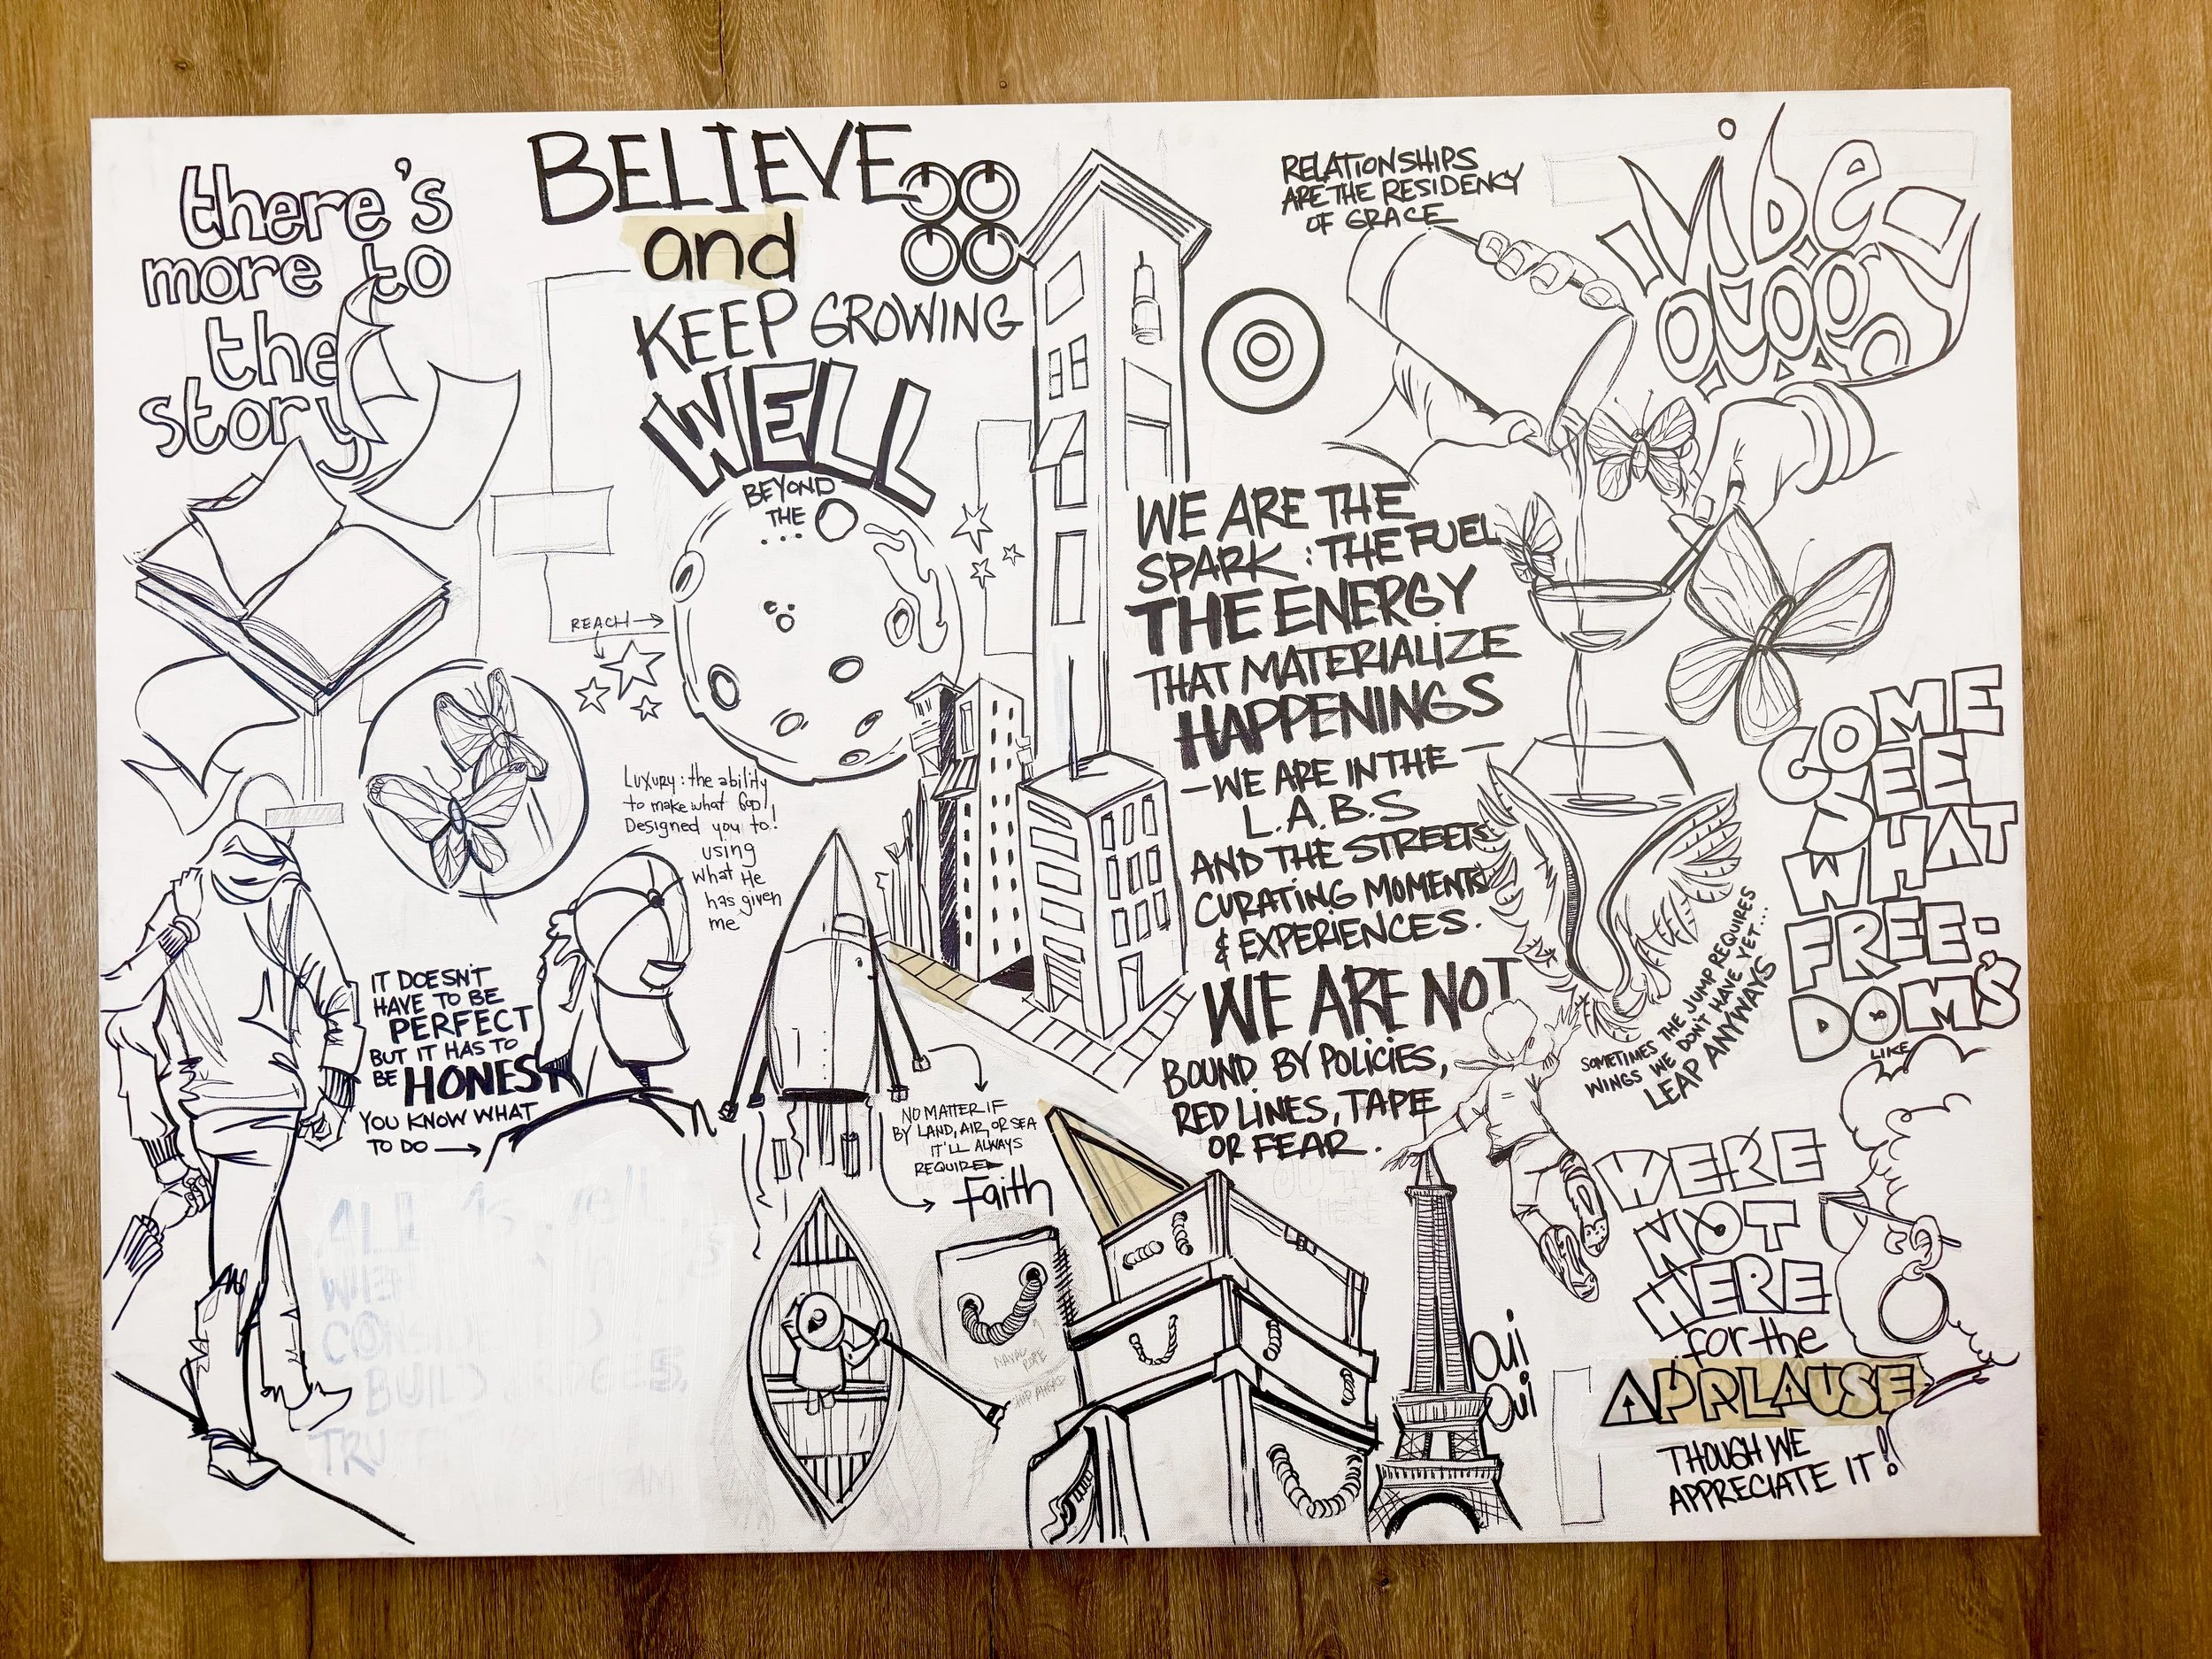 there's
more to
the
story
BELIEVE
and
KEEP GROWING
WELL
BEYOND
THE
...
REACH →
RELATIONSHIPS
ARE THE RESIDENCY
OF GRACE
Vibe
ology
WE ARE THE
SPARK : THE FUEL
THE ENERGY
THAT MATERIALIZE
HAPPENINGS
— WE ARE IN THE —
L.A.B.S
AND THE STREETS
CURATING MOMENTS
& EXPERIENCES.
WE ARE NOT
BOUND BY POLICIES,
RED LINES, TAPE
OR FEAR.
COME
SEE
WHAT
FREE-
DOM'S
LIKE
Luxury: the ability
to make what God
Designed you to!
using
what He
has given
me
IT DOESN'T
HAVE TO BE
PERFECT
BUT IT HAS TO
BE HONEST
YOU KNOW WHAT
TO DO →
NO MATTER IF
BY LAND, AIR, OR SEA
IT'LL ALWAYS
REQUIRE
Faith
NAVAL
ROPE
SHIP AHEAD
SOMETIMES THE JUMP REQUIRES
WINGS WE DON'T HAVE YET...
LEAP ANYWAYS
OUI
OUI
WERE
NOT
HERE
for the
APPLAUSE
THOUGH WE
APPRECIATE IT!
ALL
TRU